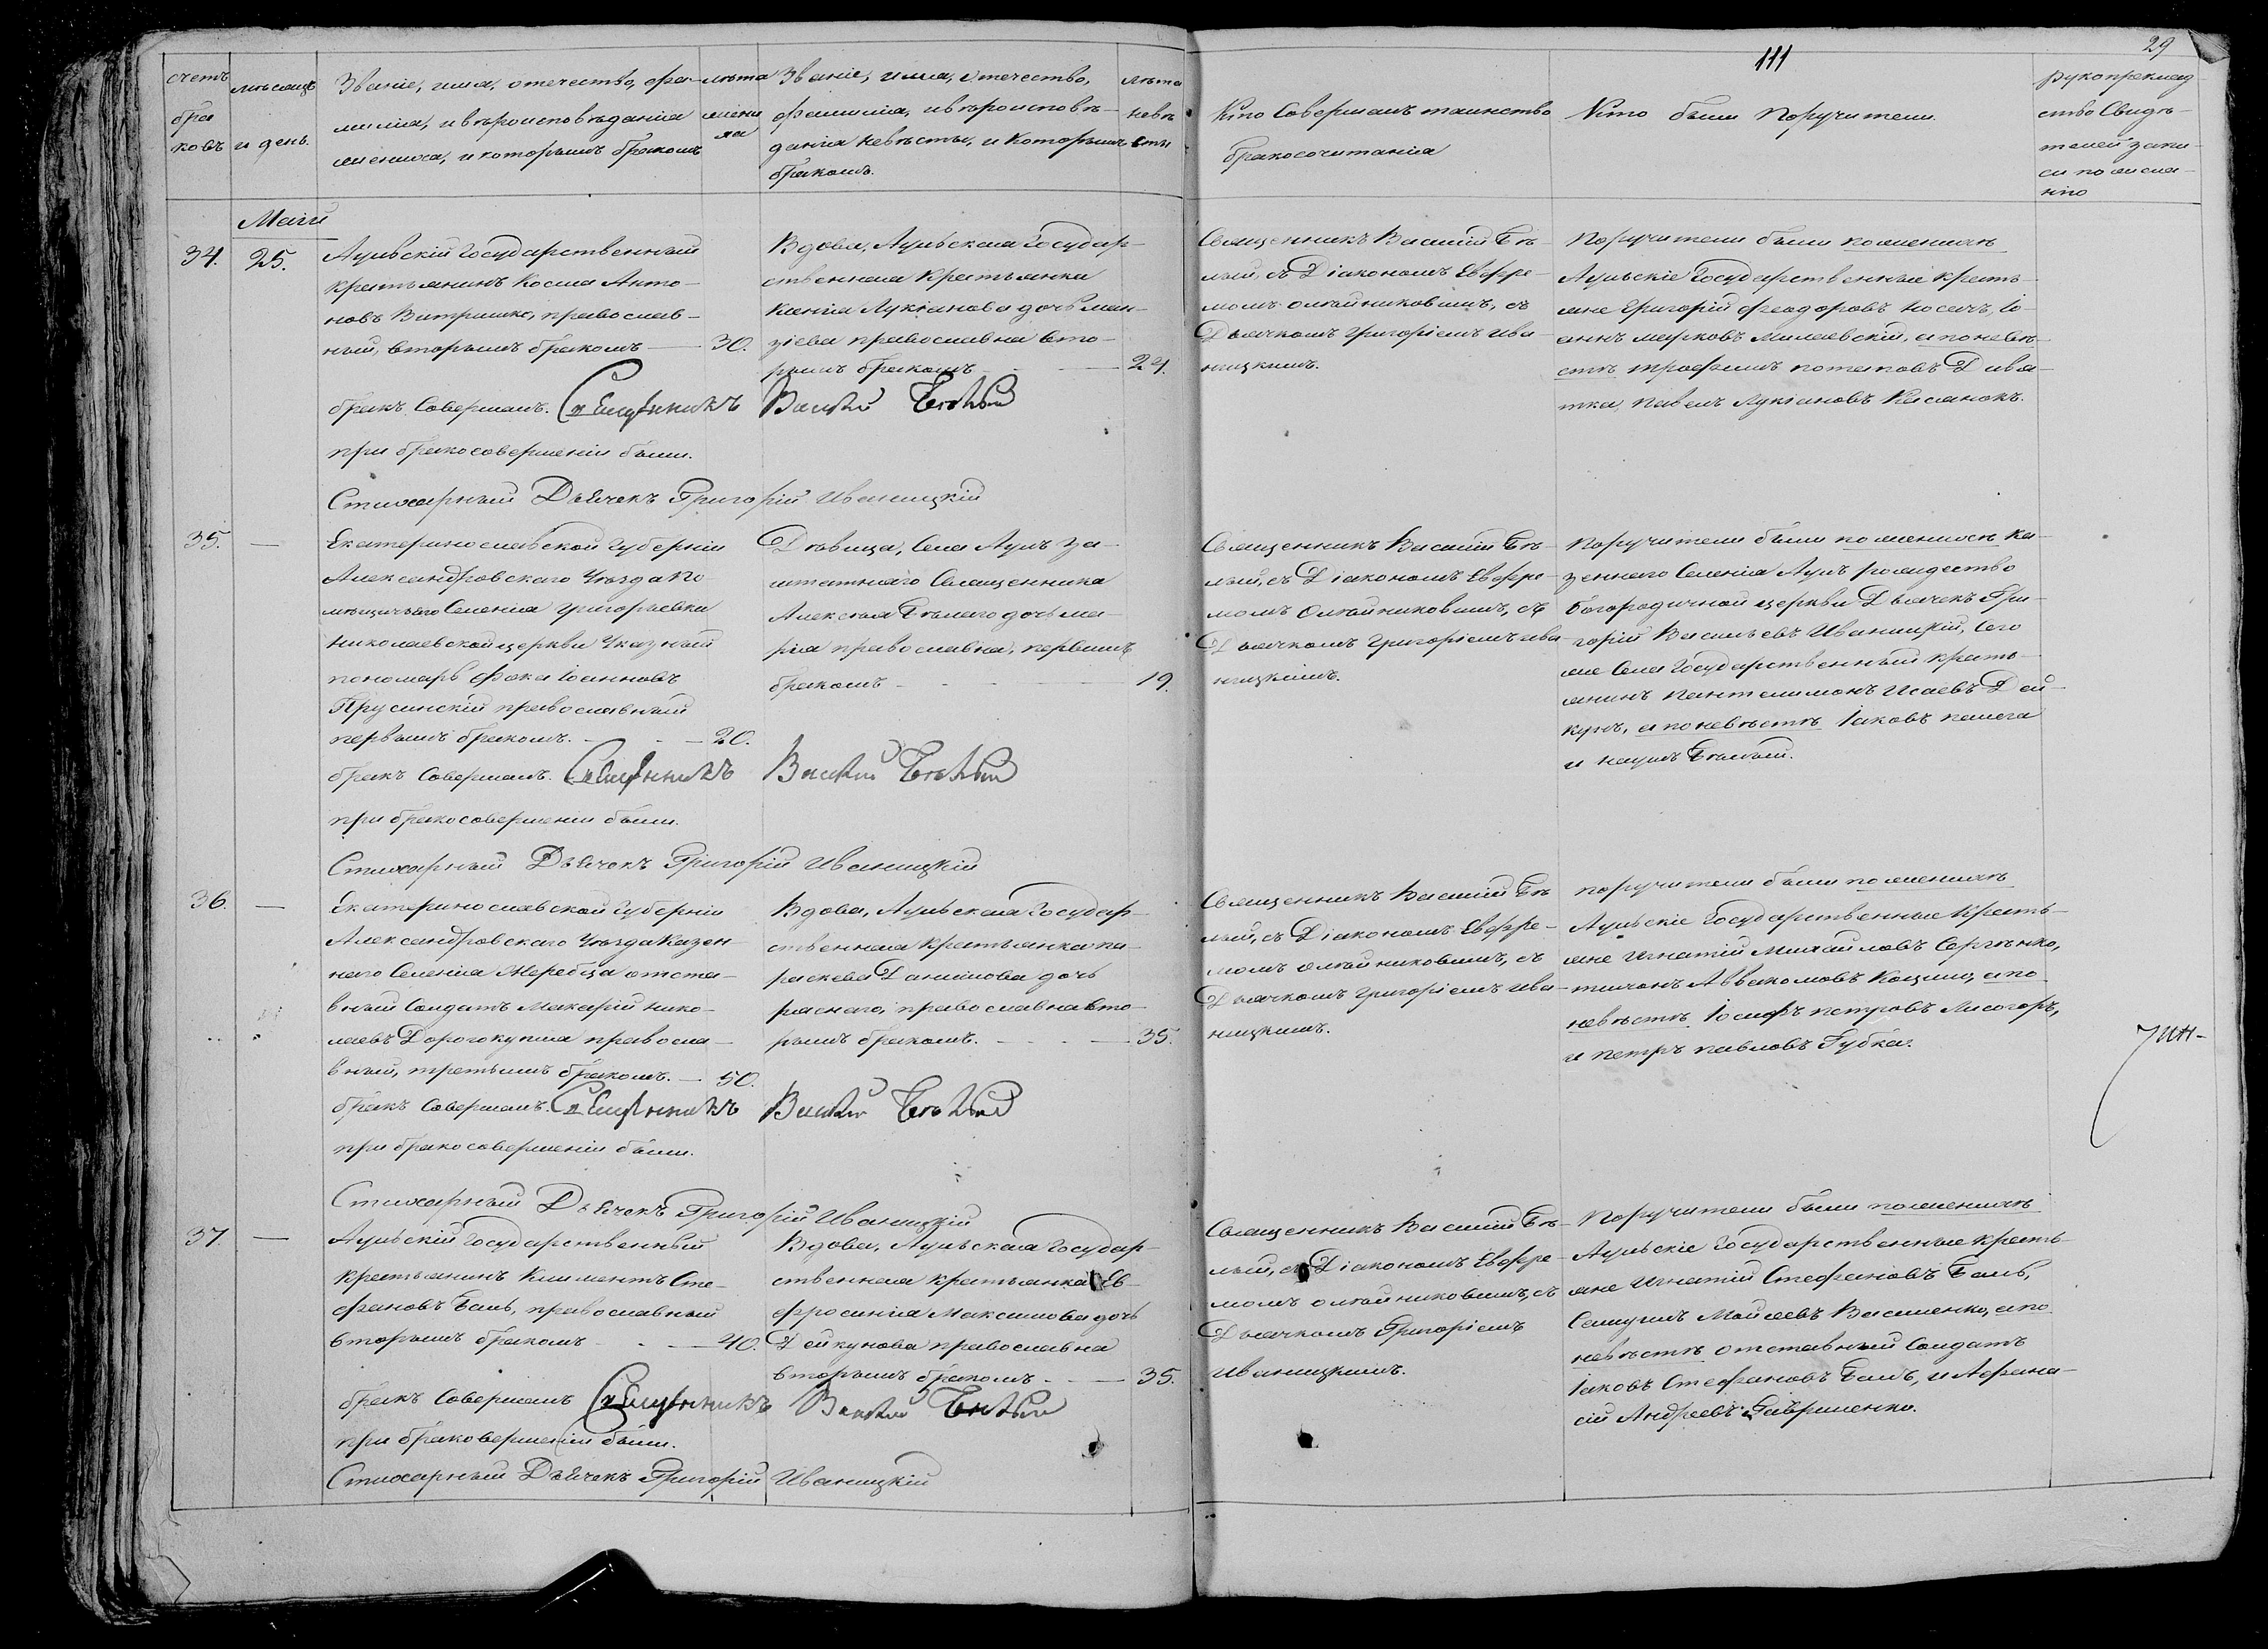 111
29
счетъ бра ковъ
мѣсяцъ и день.
Званіе, имя, отечество, фа-
милія, и вѣроисповѣданіе
жениха, и которымъ бракомъ
лѣта жени ха
Званіе, имя, отечество,
фамилія, и вѣроисповѣ-
даніе невѣсты, и которымъ
бракомъ.
лѣта невѣ сты
Кто совершалъ таинство
бракосочитанія
Кто были Поручители.
рукоприклад
ство Свидѣ-
телей запи-
си по желан-
нію
Маія
34.
25.
Аульскій Государственный
крестьянинъ Косма Анто-
новъ Витришко, православ-
ный, вторымъ бракомъ 30.
Вдова, Аульская Государ-
ственная крестьянка
Ксенія Лукіанова дочь
православна вто-
рымъ бракомъ 24.
Священникъ Василій Бѣ-
лый, съ Діакономъ Евфре-
момъ Олѣйниковымъ, съ
Дьячкомъ Григоріемъ Ива
ницкимъ.
Поручители были по женихѣ
Аульскіе Государственные кресть-
яне Григорій Феодоровъ Носачъ, Іо-
аннъ Марковъ Милаевскій, а по невѣ-
стѣ Трофимъ Потаповъ Дивя-
тка, Павелъ Лукіановъ Касанокъ.
бракъ Совершалъ. Священникъ Василій Бѣлый
при бракосовершеніи были.
Стихарный Дьячекъ Григорій Иваницкій
35. —
Екатеринославской Губерніи
Александровскаго Уѣзда По-
мѣщичьяго Селенія Григорьевки
Николаевской церкви Указный
пономарь Фока Іоанновъ
Прусинскій православный
первымъ бракомъ. 20.
Дѣвица, Села Аулъ за-
штатнаго Священника
Алексѣя Бѣлаго дочь Ма-
рія православна, первымъ
бракомъ 19.
Священникъ Василій Бѣ-
лый, съ Діакономъ Евфре-
момъ Олѣйниковымъ, съ
Дьячкомъ Григоріемъ Ива-
ницкимъ.
Поручители были по женихѣ ка-
зеннаго Селенія Аулъ рождество
Богородичной церкви Дьячекъ Гри-
горій Васильевъ Иваницкій, Сего
же Села Государственный кресть-
янинъ Пантелимонъ Исаевъ Дей-
кунъ, а по невѣстѣ Іаковъ
и Наумъ Бѣлый.
бракъ Совершалъ. Священникъ Василій Бѣлый
при бракосовершеніи были.
Стихарный Дьячекъ Григорій Иваницкій
36. —
Екатеринославской Губерніи
Александровскаго Уѣзда Казен-
наго Селенія Жеребца отста-
вный Солдатъ Макарій Нико-
лаевъ Дорогокупля правосла-
вный, третьимъ бракомъ. — 50.
Вдова, Аульская Государ-
ственная крестьянка Па-
раскева Данилова дочь
православна вто-
рымъ бракомъ. 35.
Священникъ Василій Бѣ
лый, съ Діакономъ Евфре-
момъ Олѣйниковымъ, съ
Дьячкомъ Григоріемъ Ива-
ницкимъ.
поручители были по женихѣ
Аульскіе Государственные кресть-
яне Игнатій Михайловъ Сергѣнко,
Тихонъ Аввакомовъ Кащин, а по
невѣстѣ Іосифъ Петровъ Лисогоръ,
и Петръ Павловъ Губка.
бракъ Совершалъ. Священникъ Василій Бѣлый
при бракосовершеніи были.
Стихарный Дьячекъ Григорій Иваницкій
37. —
Аульскій Государственный
крестьянинъ Климентъ Сте-
фановъ Баль, православный
вторымъ бракомъ 40.
Вдова, Аульская Государ-
ственная крестьянка Ев-
фросинія Максимова дочь
Дейкунова православна
вторымъ бракомъ. 35.
Священникъ Василій Бѣ-
лый, съ Діакономъ Евфре-
момъ Олѣйниковымъ, съ
Дьячкомъ Григоріемъ
Иваницкимъ.
Поручители были по женихѣ
Аульскіе Государственные кресть-
яне Игнатій Стефановъ Баль,
Самуилъ Мойсеевъ Василенко, а по
невѣстѣ отставный Солдатъ
Іаковъ Стефановъ Баль, и Афана-
сій Андреевъ Гавриленко.
бракъ Совершалъ Священникъ Василій Бѣлый
при браковершеніи были.
Стихарный Дьячекъ Григорій Иваницкій